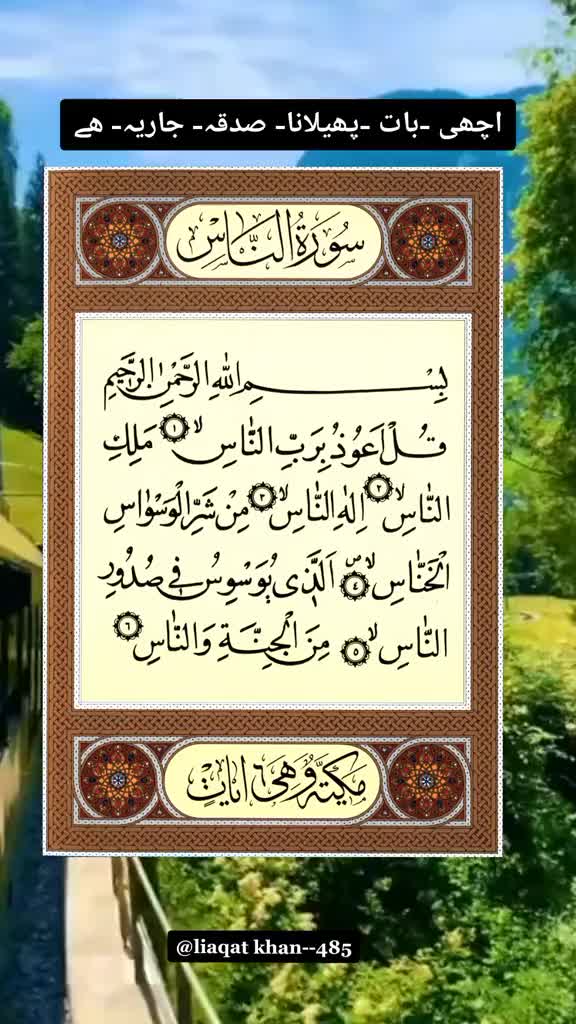 اچھی -بات -پھیلانا- صدقہ- جاریہ- ھے
سُورَةُ النَّاسِ
بِسْمِ اللّٰهِ الرَّحْمٰنِ الرَّحِیْمِ
قُلْ اَعُوْذُ بِرَبِّ النَّاسِ ۙ﴿۱﴾ مَلِكِ
النَّاسِ ۙ﴿۲﴾ اِلٰهِ النَّاسِ ۙ﴿۳﴾ مِنْ شَرِّ الْوَسْوَاسِ
الْخَنَّاسِ ۪ۙ﴿۴﴾ الَّذِیْ یُوَسْوِسُ فِیْ صُدُوْرِ
النَّاسِ ۙ﴿۵﴾ مِنَ الْجِنَّةِ وَ النَّاسِ ﴿۶﴾
مَكِّیَّةٌ وَّهِیَ ٦ اٰیَاتٍ
@liaqat khan--485